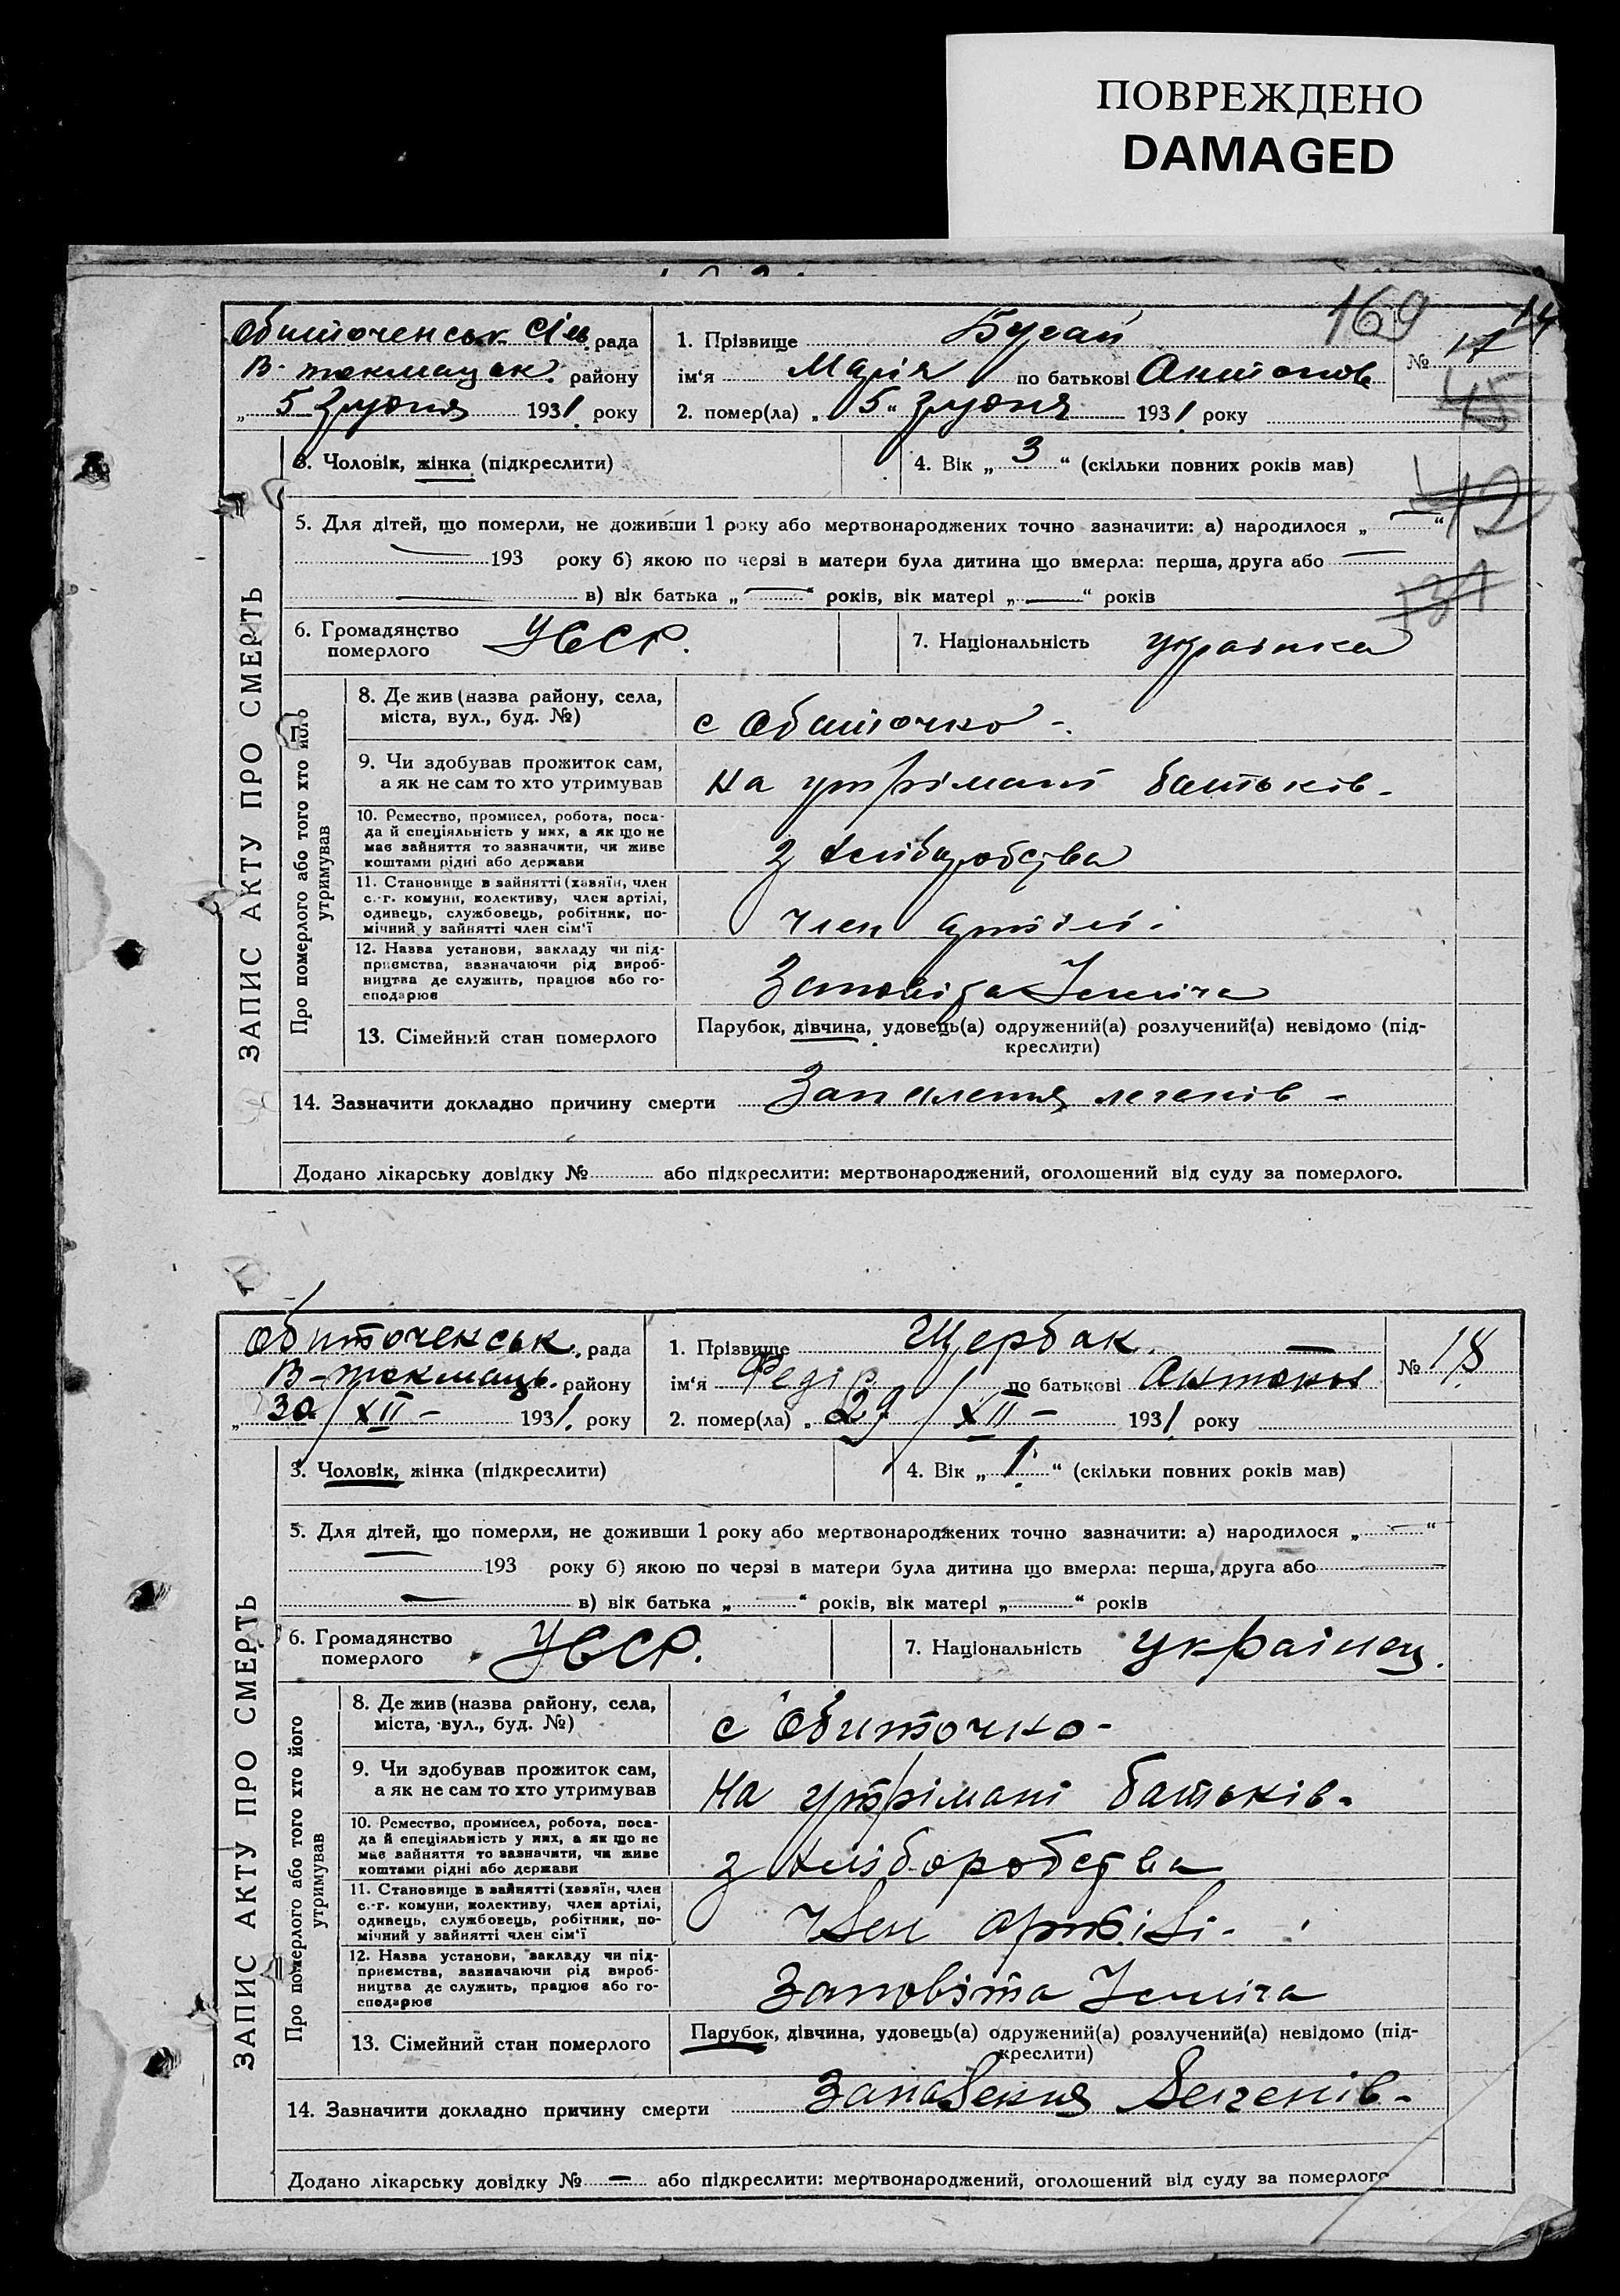 ПОВРЕЖДЕНО
DAMAGED
169
Обиточенськ. сіль. рада
В-токмацьк. району
„ 5 грудня 1931. року
1. Прізвище Бугай
ім‘я Марія по батькові Антонов
2. помер(ла) „ 5 “ грудня 1931. року
№ 17
14
45
ЗАПИС АКТУ ПРО СМЕРТЬ
3. Чоловік, жінка (підкреслити)
4. Вік „ 3 “ (скільки повних років мав)
42
5. Для дітей, що померли, не доживши 1 року або мертвонароджених точно зазначити: а) народилося „ — “
— 193 року б) якою по черзі в матери була дитина що вмерла: перша, друга або —
— в) вік батька „ — “ років, вік матері „ — “ років
131
6. Громадянство
померлого
УССР.
7. Національність українка
Про померлого або того хто його
утримував
8. Де жив (назва району, села,
міста, вул., буд. №)
с Обиточно -.
9. Чи здобував прожиток сам,
а як не сам то хто утримував
на утрімані батьків -
10. Ремество, промисел, робота, поса-
да й спеціяльність у них, а як що не
має зайняття то зазначити, чи живе
коштами рідні або держави
з хліборобства
11. Становище в зайнятті (хазяїн, член
с.-г. комуни, колективу, член артілі,
одинець, службовець, робітник, по-
мічний у зайнятті член сім‘ї
член артілі -
12. Назва установи, закладу чи під-
приємства, зазначаючи рід вироб-
ництва де служить, працює або го-
сподарює
Заповіта Ілліча
13. Сімейний стан померлого
Парубок, дівчина, удовець(а) одружений(а) розлучений(а) невідомо (під-
креслити)
14. Зазначити докладно причину смерти Запалення легенів -
Додано лікарську довідку № або підкреслити: мертвонароджений, оголошений від суду за померлого.
Обиточенськ. рада
В-токмацьк. району
„ 30/XII - 1931. року
1. Прізвище Щербак
ім‘я Федір по батькові Антонов
2. помер(ла) „ 29/XII - 1931. року
№ 18
ЗАПИС АКТУ ПРО СМЕРТЬ
3. Чоловік, жінка (підкреслити)
4. Вік „ 1 “ (скільки повних років мав)
5. Для дітей, що померли, не доживши 1 року або мертвонароджених точно зазначити: а) народилося „ — “
— 193 року б) якою по черзі в матери була дитина що вмерла: перша, друга або —
— в) вік батька „ “ років, вік матері „ “ років
6. Громадянство
померлого
УССР.
7. Національність українец.
Про померлого або того хто його
утримував
8. Де жив (назва району, села,
міста, вул., буд. №)
с Обиточно -
9. Чи здобував прожиток сам,
а як не сам то хто утримував
на утрімані батьків -
10. Ремество, промисел, робота, поса-
да й спеціяльність у них, а як що не
має зайняття то зазначити, чи живе
коштами рідні або держави
з хліборобства
11. Становище в зайнятті (хазяїн, член
с.-г. комуни, колективу, член артілі,
одинець, службовець, робітник, по-
мічний у зайнятті член сім‘ї
член артілі -
12. Назва установи, закладу чи під-
приємства, зазначаючи рід вироб-
ництва де служить, працює або го-
сподарює
Заповіта Ілліча
13. Сімейний стан померлого
Парубок, дівчина, удовець(а) одружений(а) розлучений(а) невідомо (під-
креслити)
14. Зазначити докладно причину смерти Запалення легенів -
Додано лікарську довідку № — або підкреслити: мертвонароджений, оголошений від суду за померлого